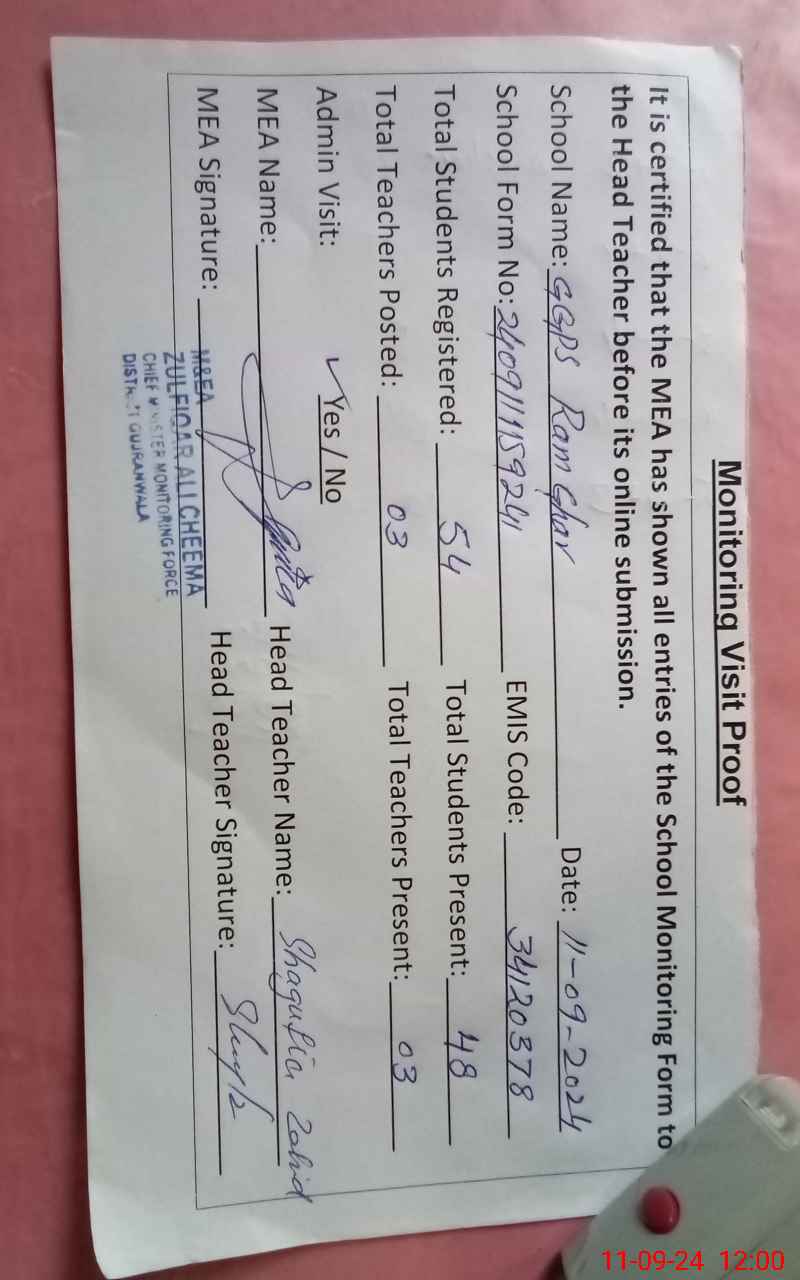 Monitoring Visit Proof
It is certified that the MEA has shown all entries of the School Monitoring Form to
the Head Teacher before its online submission.
School Name: GGPS Ram Ghar Date: 11-09-2024
School Form No: EMIS Code: 34120378
Total Students Registered: 54 Total Students Present: 48
Total Teachers Posted: 03 Total Teachers Present: 03
Admin Visit: ✓ Yes / No
MEA Name: Head Teacher Name: Shagufta Zahid
MEA Signature: Head Teacher Signature:
M&EA
ZULFIQAR ALI CHEEMA
CHIEF MINISTER MONITORING FORCE
DISTRICT GUJRANWALA
11-09-24 12:00